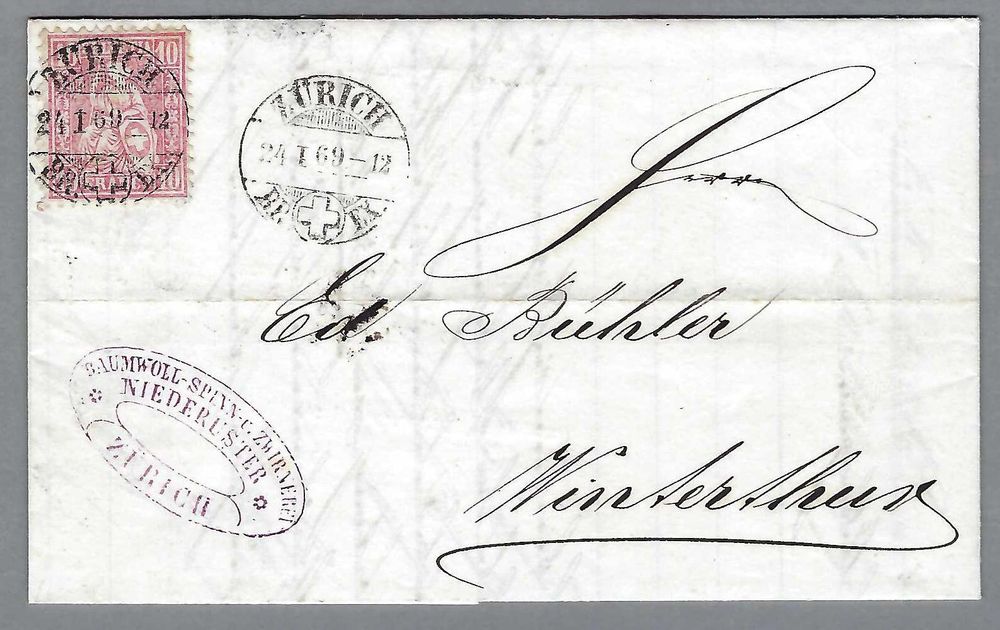 10 10
ZÜRICH
24 I 69-12
BR. EX.
10
ZÜRICH
24 I 69-12
BR. EX.
Herrn
Ed. Bühler
Winterthur
BAUMWOLL-SPINN-U. ZWIRNEREI
NIEDERUSTER
ZÜRICH